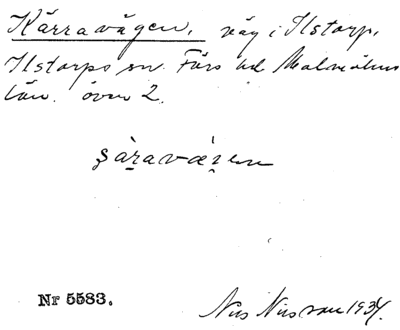 Kärravägen. väg i Ilstorp,
Ilstorps sn. Färs hd Malmöhus
län. övn 2.
Nr 5583.
Nils Nilsson 1934.